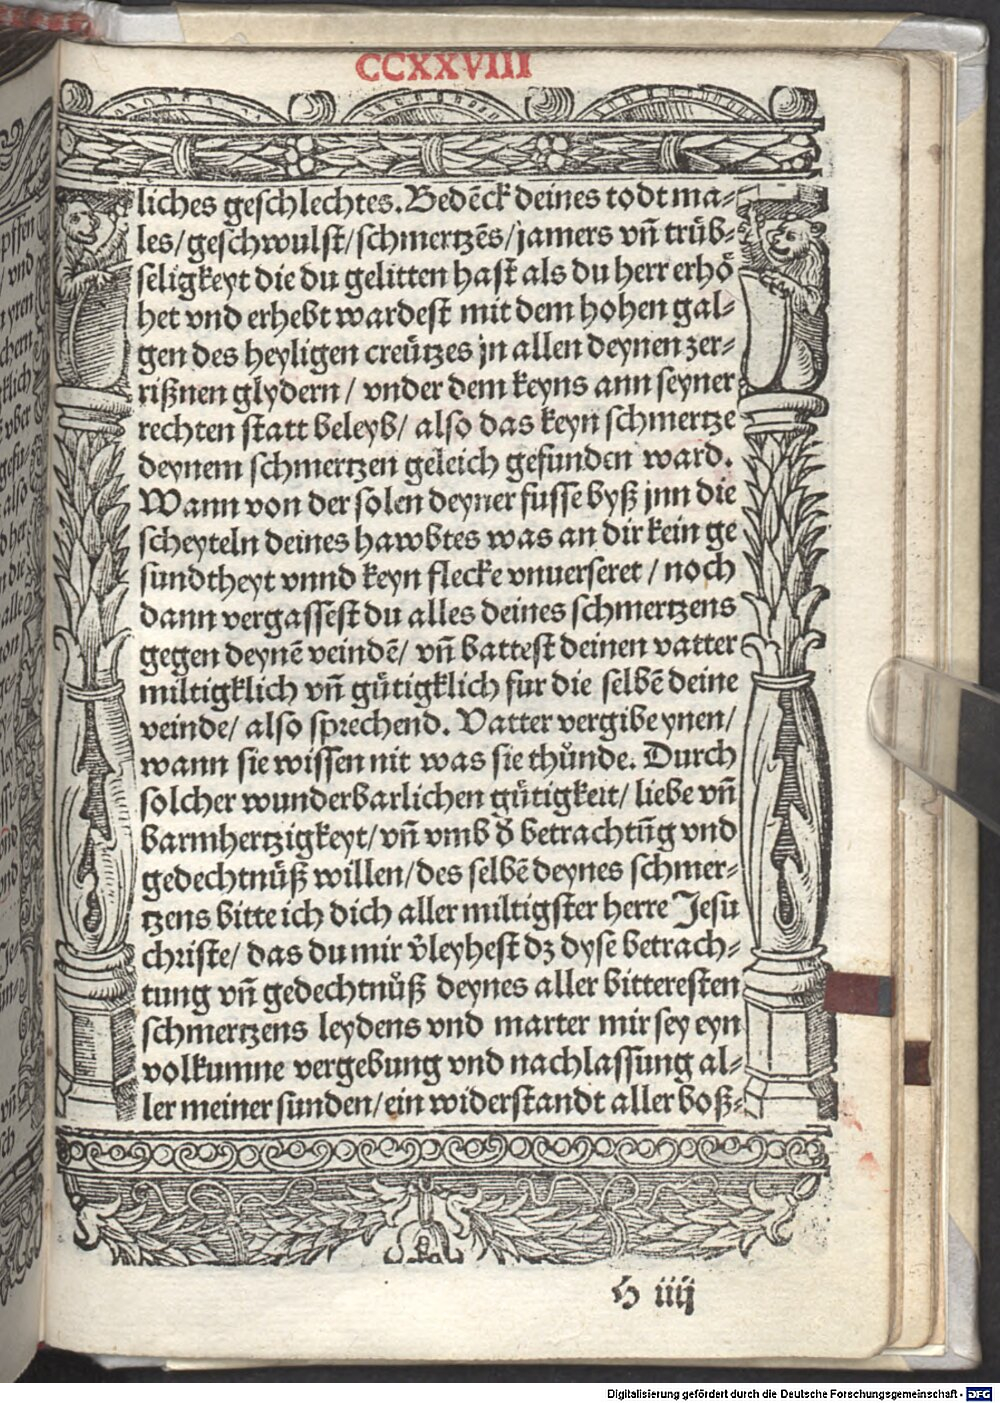 CCXXVIII
liches geschlechtes. Bedēck deines todt ma⸗
les/ geschwulst/ schmertzēs/ jamers vn̄ truͤb⸗
seligkeyt die du gelitten hast als du herr erhoͤ
het vnd erhebt wardest mit dem hohen gal⸗
gen des heyligen creuͤtzes jn allen deynen zer⸗
rißnen glydern / vnder dem keyns ann seyner
rechten statt beleyb/ also das keyn schmertze
deynem schmertzen geleich gefunden ward.
Wann von der solen deyner fusse byß jnn die
scheyteln deines hawbtes was an dir kein ge
sundtheyt vnnd keyn flecke vnuerseret / noch
dann vergassest du alles deines schmertzens
gegen deynē veindē/ vn̄ battest deinen vatter
miltigklich vn̄ guͤtigklich fur die selbē deine
veinde/ also sprechend. Vatter vergibe ynen/
wann sie wissen nit was sie thuͦnde. Durch
solcher wunderbarlichen guͤtigkeit/ liebe vn̄
barmhertzigkeyt/ vn̄ vmb d̕ betrachtūg vnd
gedechtnuͤß willen/ des selbē deynes schmer⸗
tzens bitte ich dich aller miltigster herre Jesu
christe/ das du mir v̕leyhest dz dyse betrach⸗
tung vn̄ gedechtnuͦß deynes aller bitteresten
schmertzens leydens vnd marter mir sey eyn
volkumne vergebung vnd nachlassung al⸗
ler meiner sunden/ ein widerstandt aller boß⸗
H iiij
pffen
vnd
yren
chern
klich
vber
gesu/
also
d ber
n die
alle
von
ond
Je
vn̄
ch
Digitalisierung gefördert durch die Deutsche Forschungsgemeinschaft - DFG